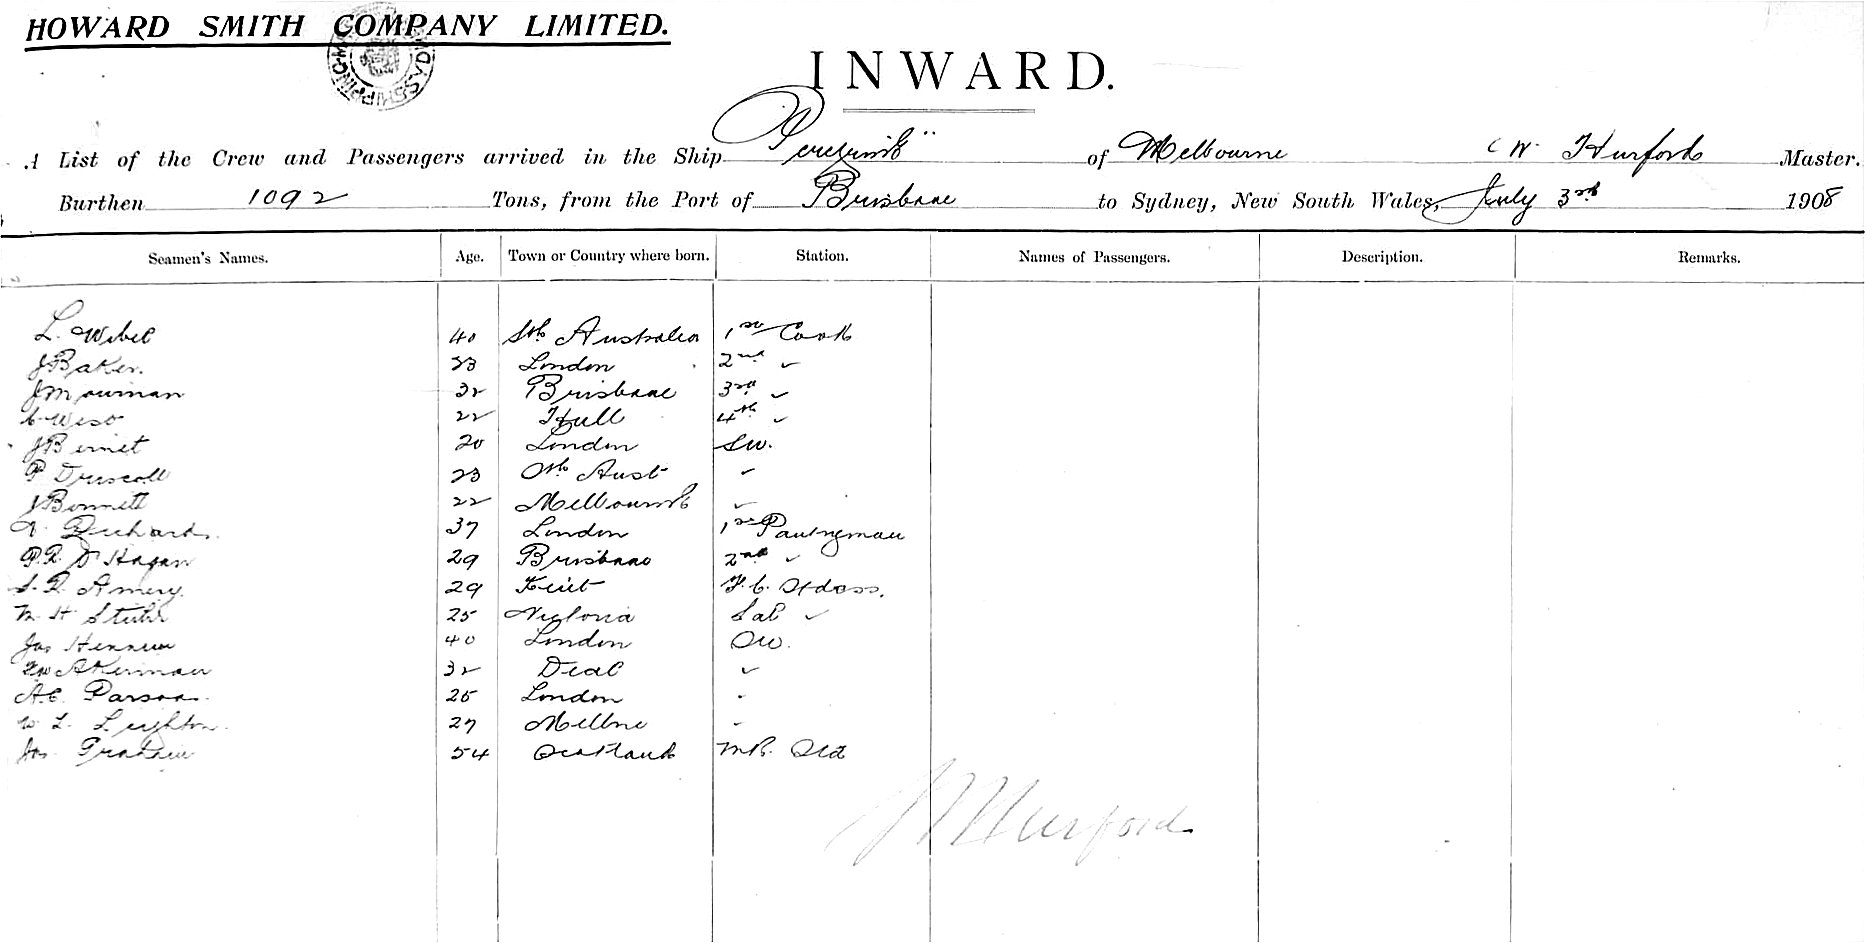 HOWARD SMITH COMPANY LIMITED.
INWARD.
A List of the Crew and Passengers arrived in the Ship "Peregrine" of Melbourne W. Hurford Master.
Burthen 1092 Tons, from the Port of Brisbane to Sydney, New South Wales, July 3rd 1908
Seamen's Names. Age. Town or Country where born. Station. Names of Passengers. Description. Remarks.
L. 40 Sth Australia 1st Cook
J Baker. 23 London 2nd ✓
J 32 Brisbane 3rd ✓
22 Hull 4th ✓
J 20 London Sw.
P Driscoll 23 Sth Aust ✓
J Bennett 22 Melbourne ✓
Richards. 37 London 1st Pantryman
P.R. O'Hagan 29 Brisbane 2nd ✓
S. R. Amery. 29 Kent F.C. Stdess.
25 Victoria Sal ✓
Jas 40 London
Akerman 32 Deal ✓
A.C. Parsons. 25 London
W L Leighton. 27 Melbne
Jas Graham 54 Scotland
W Hurford